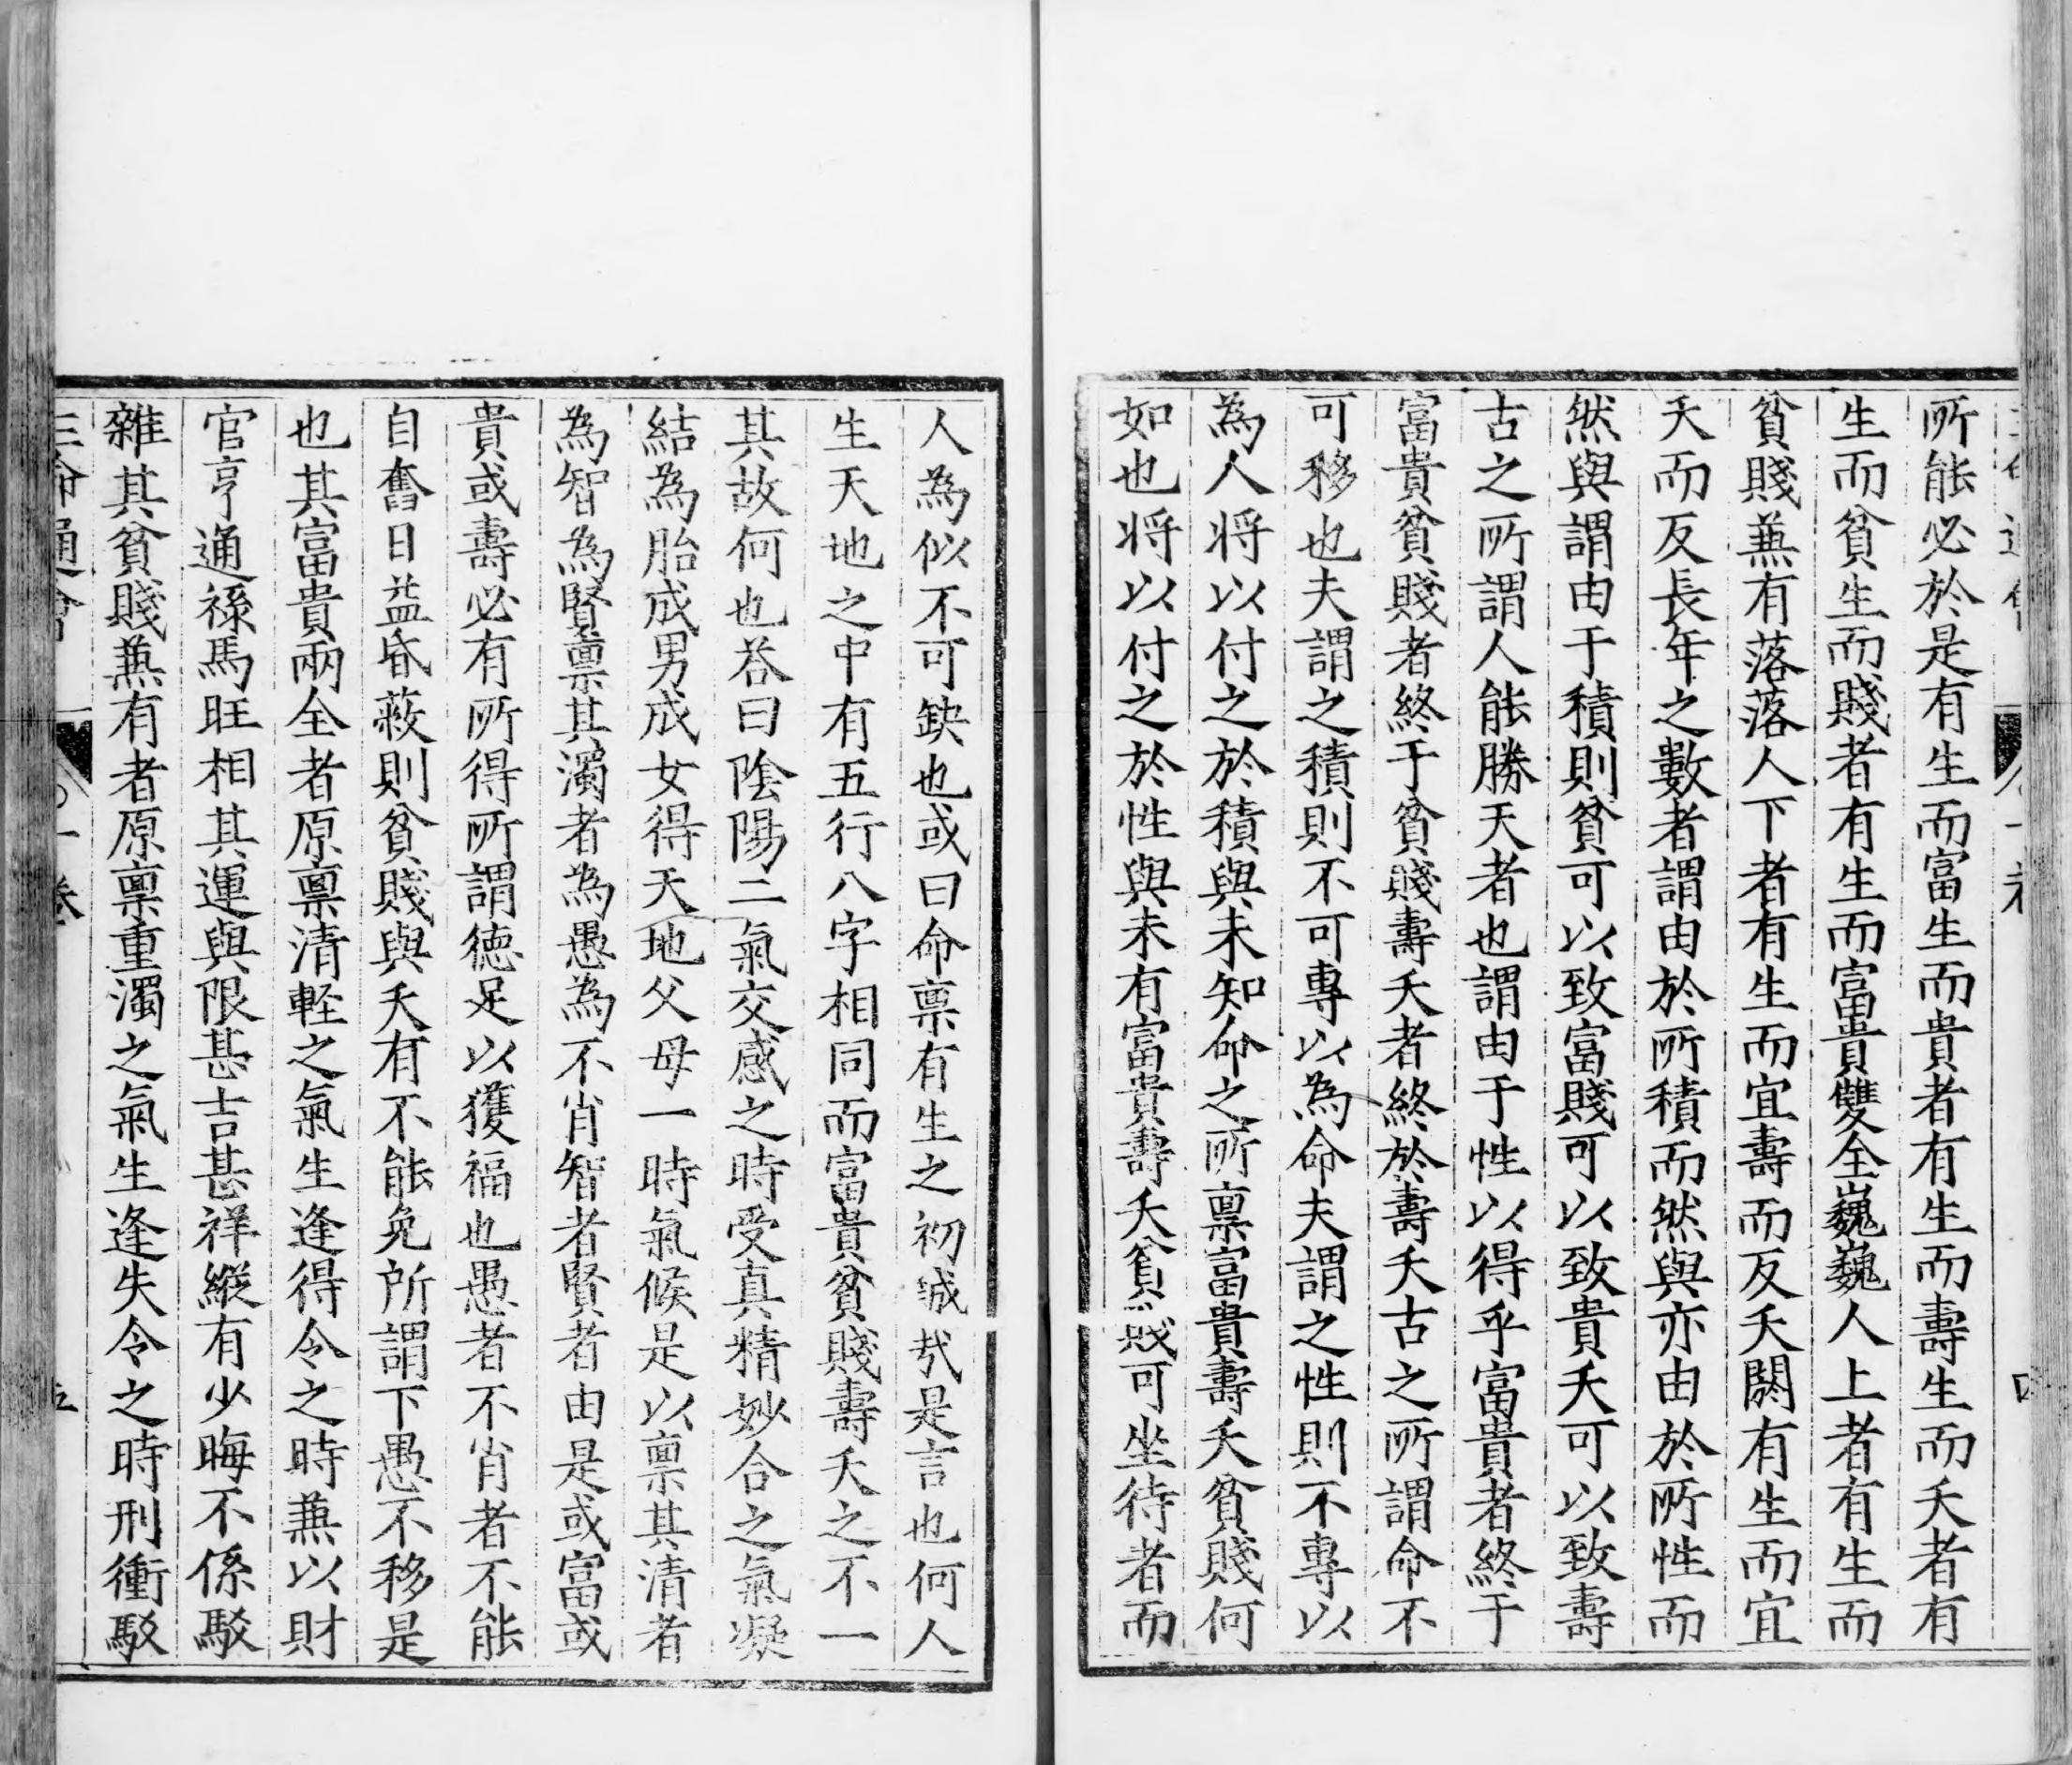 所能必於是有生而富生而貴者有生而壽生而夭者有
生而貧生而賤者有生而富貴雙全巍巍人上者有生而
貧賤兼有落落人下者有生而宜壽而反夭閼有生而宜
夭而反長年之數者謂由於所積而然與亦由於所性而
然與謂由于積則貧可以致富賤可以致貴夭可以致壽
古之所謂人能勝天者也謂由于性以得乎富貴者終于
富貴貧賤者終于貧賤壽夭者終於壽夭古之所謂命不
可移也夫謂之積則不可專以為命夫謂之性則不專以
為人將以付之於積與未知命之所禀富貴壽夭貧賤何
如也將以付之於性與未有富貴壽夭貧賤可坐待者而
人為似不可缺也或曰命禀有生之初誠哉是言也何人
生天地之中有五行八字相同而富貴貧賤壽夭之不一
其故何也荅曰陰陽二氣交感之時受真精妙合之氣凝
結為胎成男成女得天地父母一時氣候是以禀其清者
為智為賢禀其濁者為愚為不肖智者賢者由是或富或
貴或壽必有所得所謂德足以獲福也愚者不肖者不能
自奮日益昏蔽則貧賤與夭有不能免所謂下愚不移是
也其富貴兩全者原禀清輕之氣生逢得令之時兼以財
官亨通祿馬旺相其運與限甚吉甚祥縱有少晦不係駁
雜其貧賤兼有者原禀重濁之氣生逢失令之時刑衝駁
三命通會 一卷 五